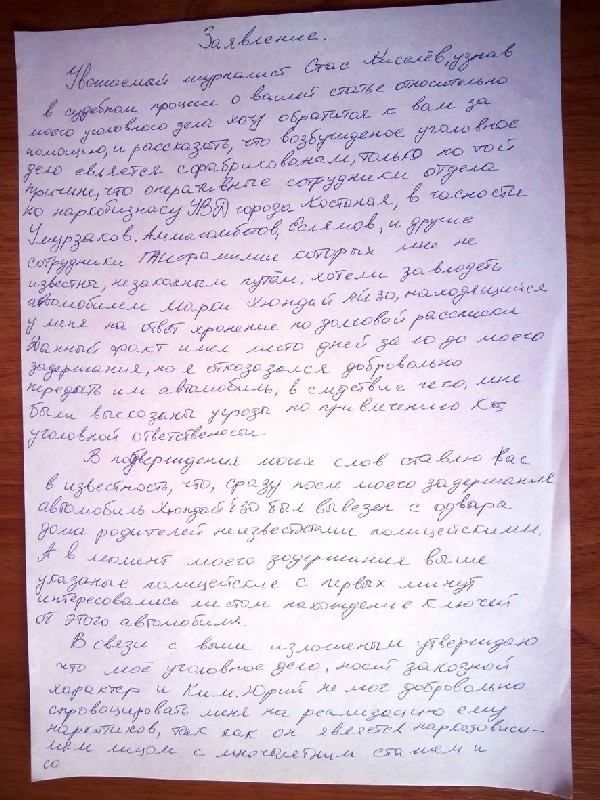 Заявление.
Уважаемый журналист Стас Киселёв, узнав
в судебном процессе о вашей статье относительно
моего уголовного дела хочу обратится к вам за
помощью, и рассказать, что возбужденое уголовное
дело является сфабрикованам, только по той
причине, что оперативные сотрудники отдела
по наркобизнесу УВД города Костаная, в часности
Умурзаков, Алмагамбетов, Еслямов, и другие
сотрудники фамилии которых мне не
известны, незаконным путём, хотели завладеть
автомобилем марки Хюндай находящийся
у меня на ответ хронение по долговой рассписки
Данный факт имел место дней за 10 до моего
задержания, но я отказазался добровольно
передать им автомобиль, в следствие чего, мне
были высказаны угрозы по привличению к
уголовной ответствености.
В подтверждения моих слов ставлю Вас
в известность, что, сразу после моего задержания
автомобиль Хюндай i30 был вывезен с одвара
дома родителей неизвестными полицейскими.
А в момент моего задержания выше
указаные полицейские с первых минут
интересовались местом нахождение ключей
от этого автомобиля.
В связи с выше изложеным утверждаю
что моё уголовное дело, носит заказной
характер и Ким.Юрий не мог добровольно
спровоцировать меня на реализацию ему
наркотиков, так как он является наркозависи-
мым лицом с многолетним стажем и
со